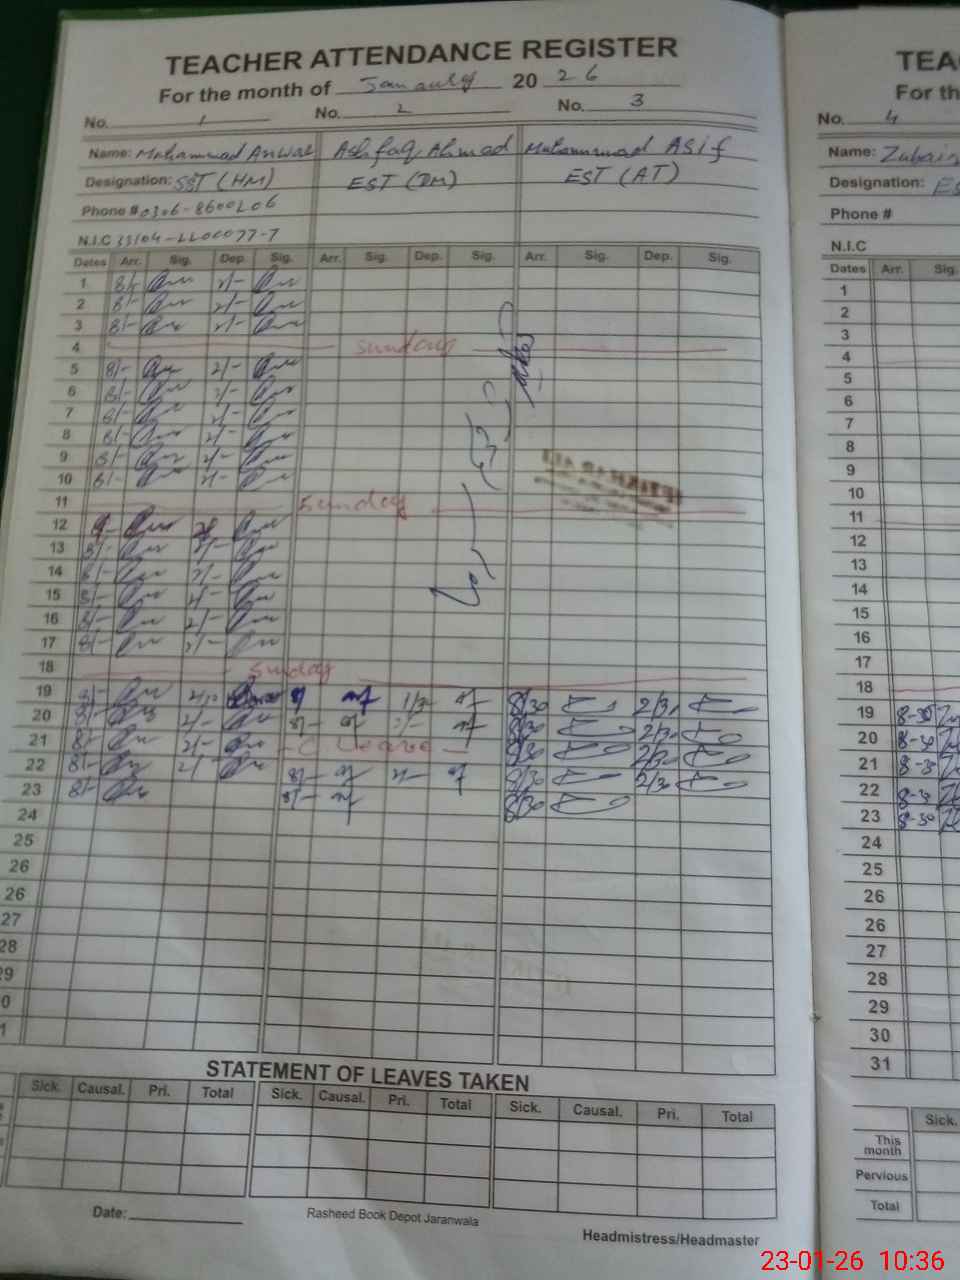 TEACHER ATTENDANCE REGISTER
For the month of January 20 26
No. 1 No. 2 No. 3
Name: Mohammad Anwar Ashfaq Ahmad Muhammad Asif
Designation: SST (HM) EST (DM) EST (AT)
Phone # 0306-8600206
N.I.C
Dates Arr. Sig. Dep. Sig. Arr. Sig. Dep. Sig. Arr. Sig. Dep. Sig.
1 8/- 2/-
2 8/- 2/-
3 8/- 2/-
4 Sunday
5 8/- 2/-
6 8/- 2/-
7 8/- 2/-
8 8/- 2/-
9 8/- 2/-
10 8/- 2/-
11 Sunday
12
13 8/- 2/-
14 8/- 2/-
15 8/- 2/-
16 8/- 2/-
17 8/- 2/-
18 Sunday
19 8/- 8/30 2/30
20 8/- 2/- 8/- 2/- 8/30 2/30
21 8/- 2/- C Leave 8/30 2/30
22 8/- 2/- 8/- 2/- 8/30 2/30
23 8/- 8/- 8/30
24
25
26
26
27
28
29
0
1
STATEMENT OF LEAVES TAKEN
Sick. Causal. Pri. Total Sick. Causal. Pri. Total Sick. Causal. Pri. Total
Date:
Rasheed Book Depot Jaranwala
Headmistress/Headmaster
TEA
For th
No. 4
Name: Zubair
Designation: ES
Phone #
N.I.C
Dates Arr. Sig.
1
2
3
4
5
6
7
8
9
10
11
12
13
14
15
16
17
18
19 8-30
20 8-30
21 8-30
22 8-30
23 8-30
24
25
26
26
27
28
29
30
31
Sick.
This month
Pervious
Total
23-01-26 10:36